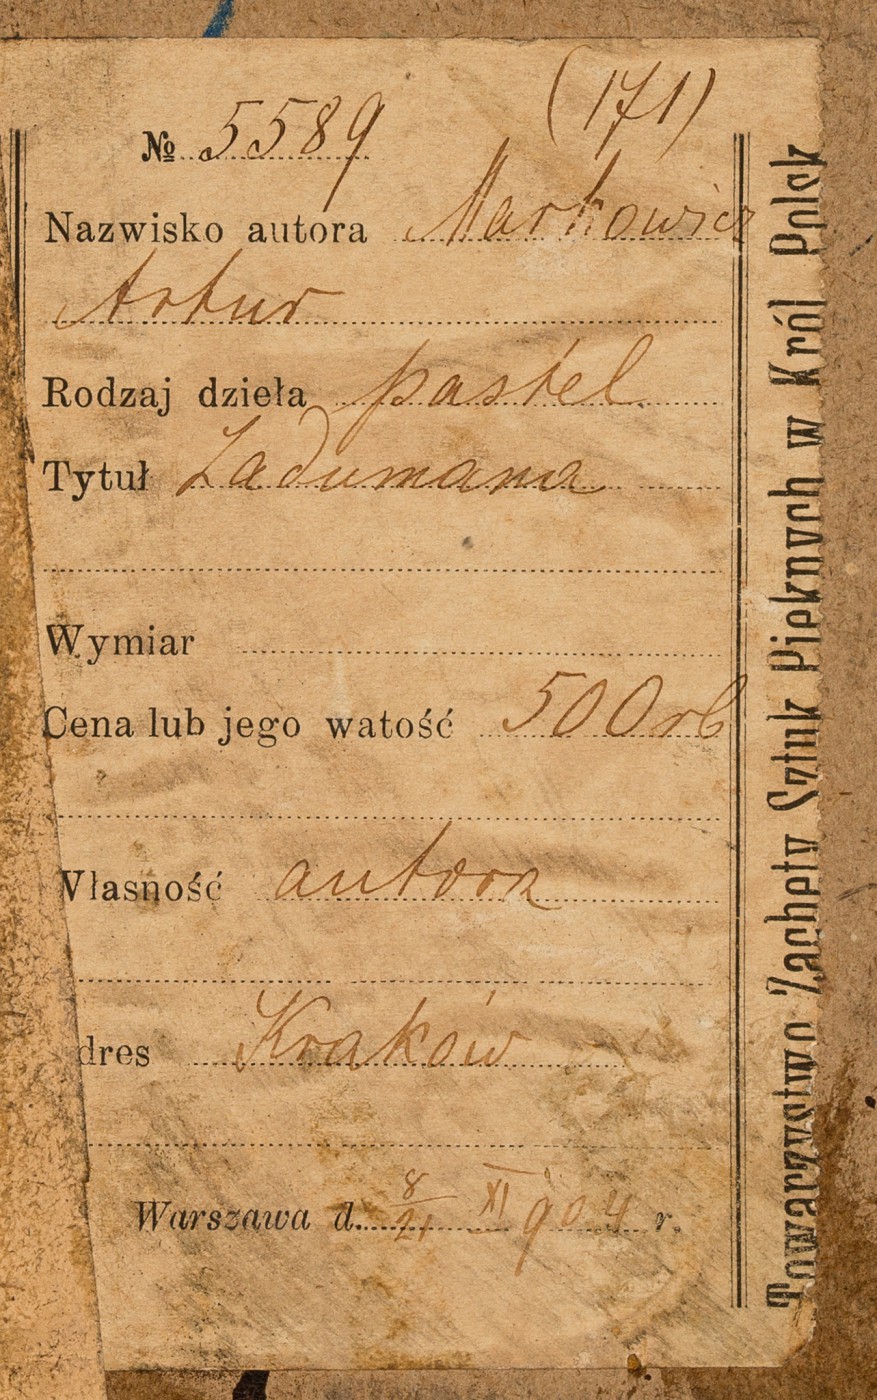 (171)
№ 5589
Nazwisko autora Markowicz
Artur
Rodzaj dzieła pastel
Tytuł Zadumana
Wymiar
Cena lub jego watość 500 rb
Własność autora
dres Kraków
Warszawa d. 8/21 XI 904 r.
Towarzystwo Zachęty Sztuk Pięknych w Król Polsk